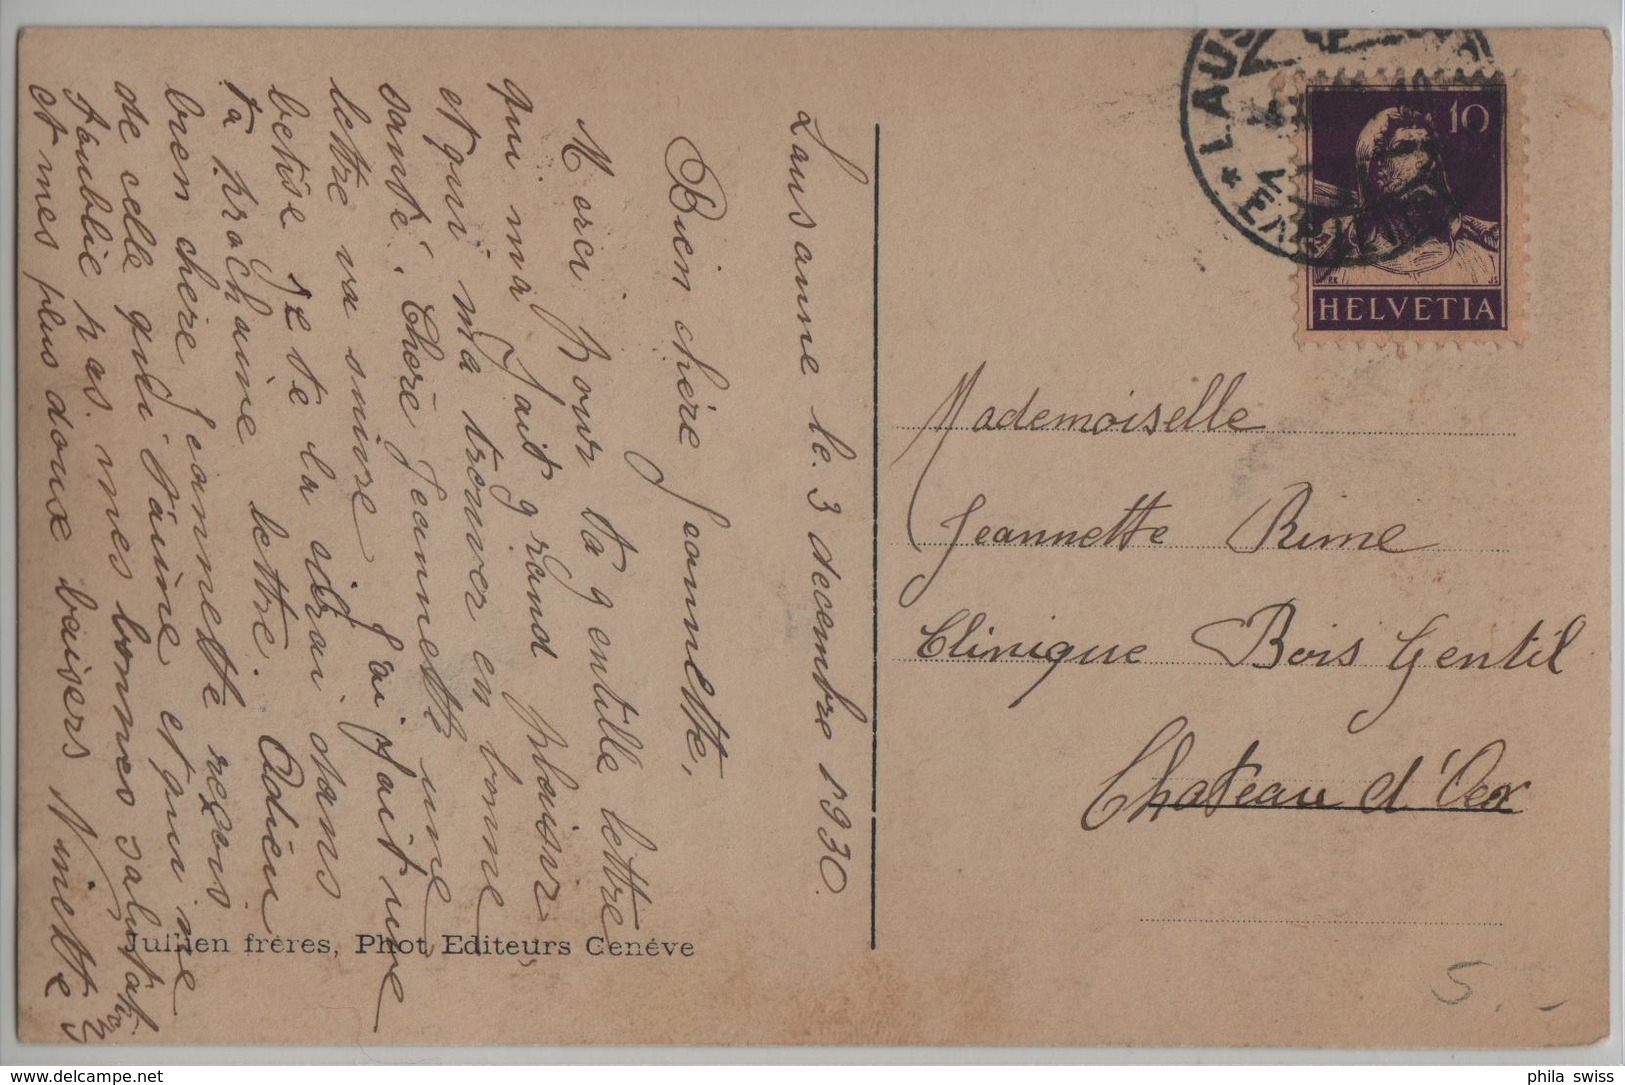 Lausanne le. 3 decembre 1930.
Bien chère Jeannette,
Merci pour ta gentille lettre
qui ma fait grand plaisir
et qui ma trouver en bonne
santé. Chère Jeannette une
lettre va suivre j'ai fait une
betise je te la dirai dans
ta prochaine lettre. Adieu
bien chère Jeannette reçois
de celle qui t'aime et qui ne
t'oublie pas. mes bonnes salutations
et mes plus doux baisers Ninette
Juillen frères, Phot Editeurs Genéve
LAUS
EXP. LETT
10
HELVETIA
Mademoiselle
Jeannette Rime
Clinique Bois Gentil
Chateau d'Oex
5.-
phila swiss